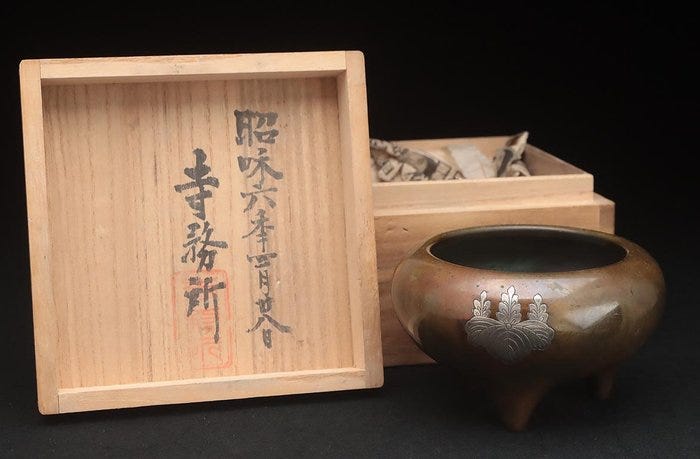 昭和六年四月廿八日
寺務所